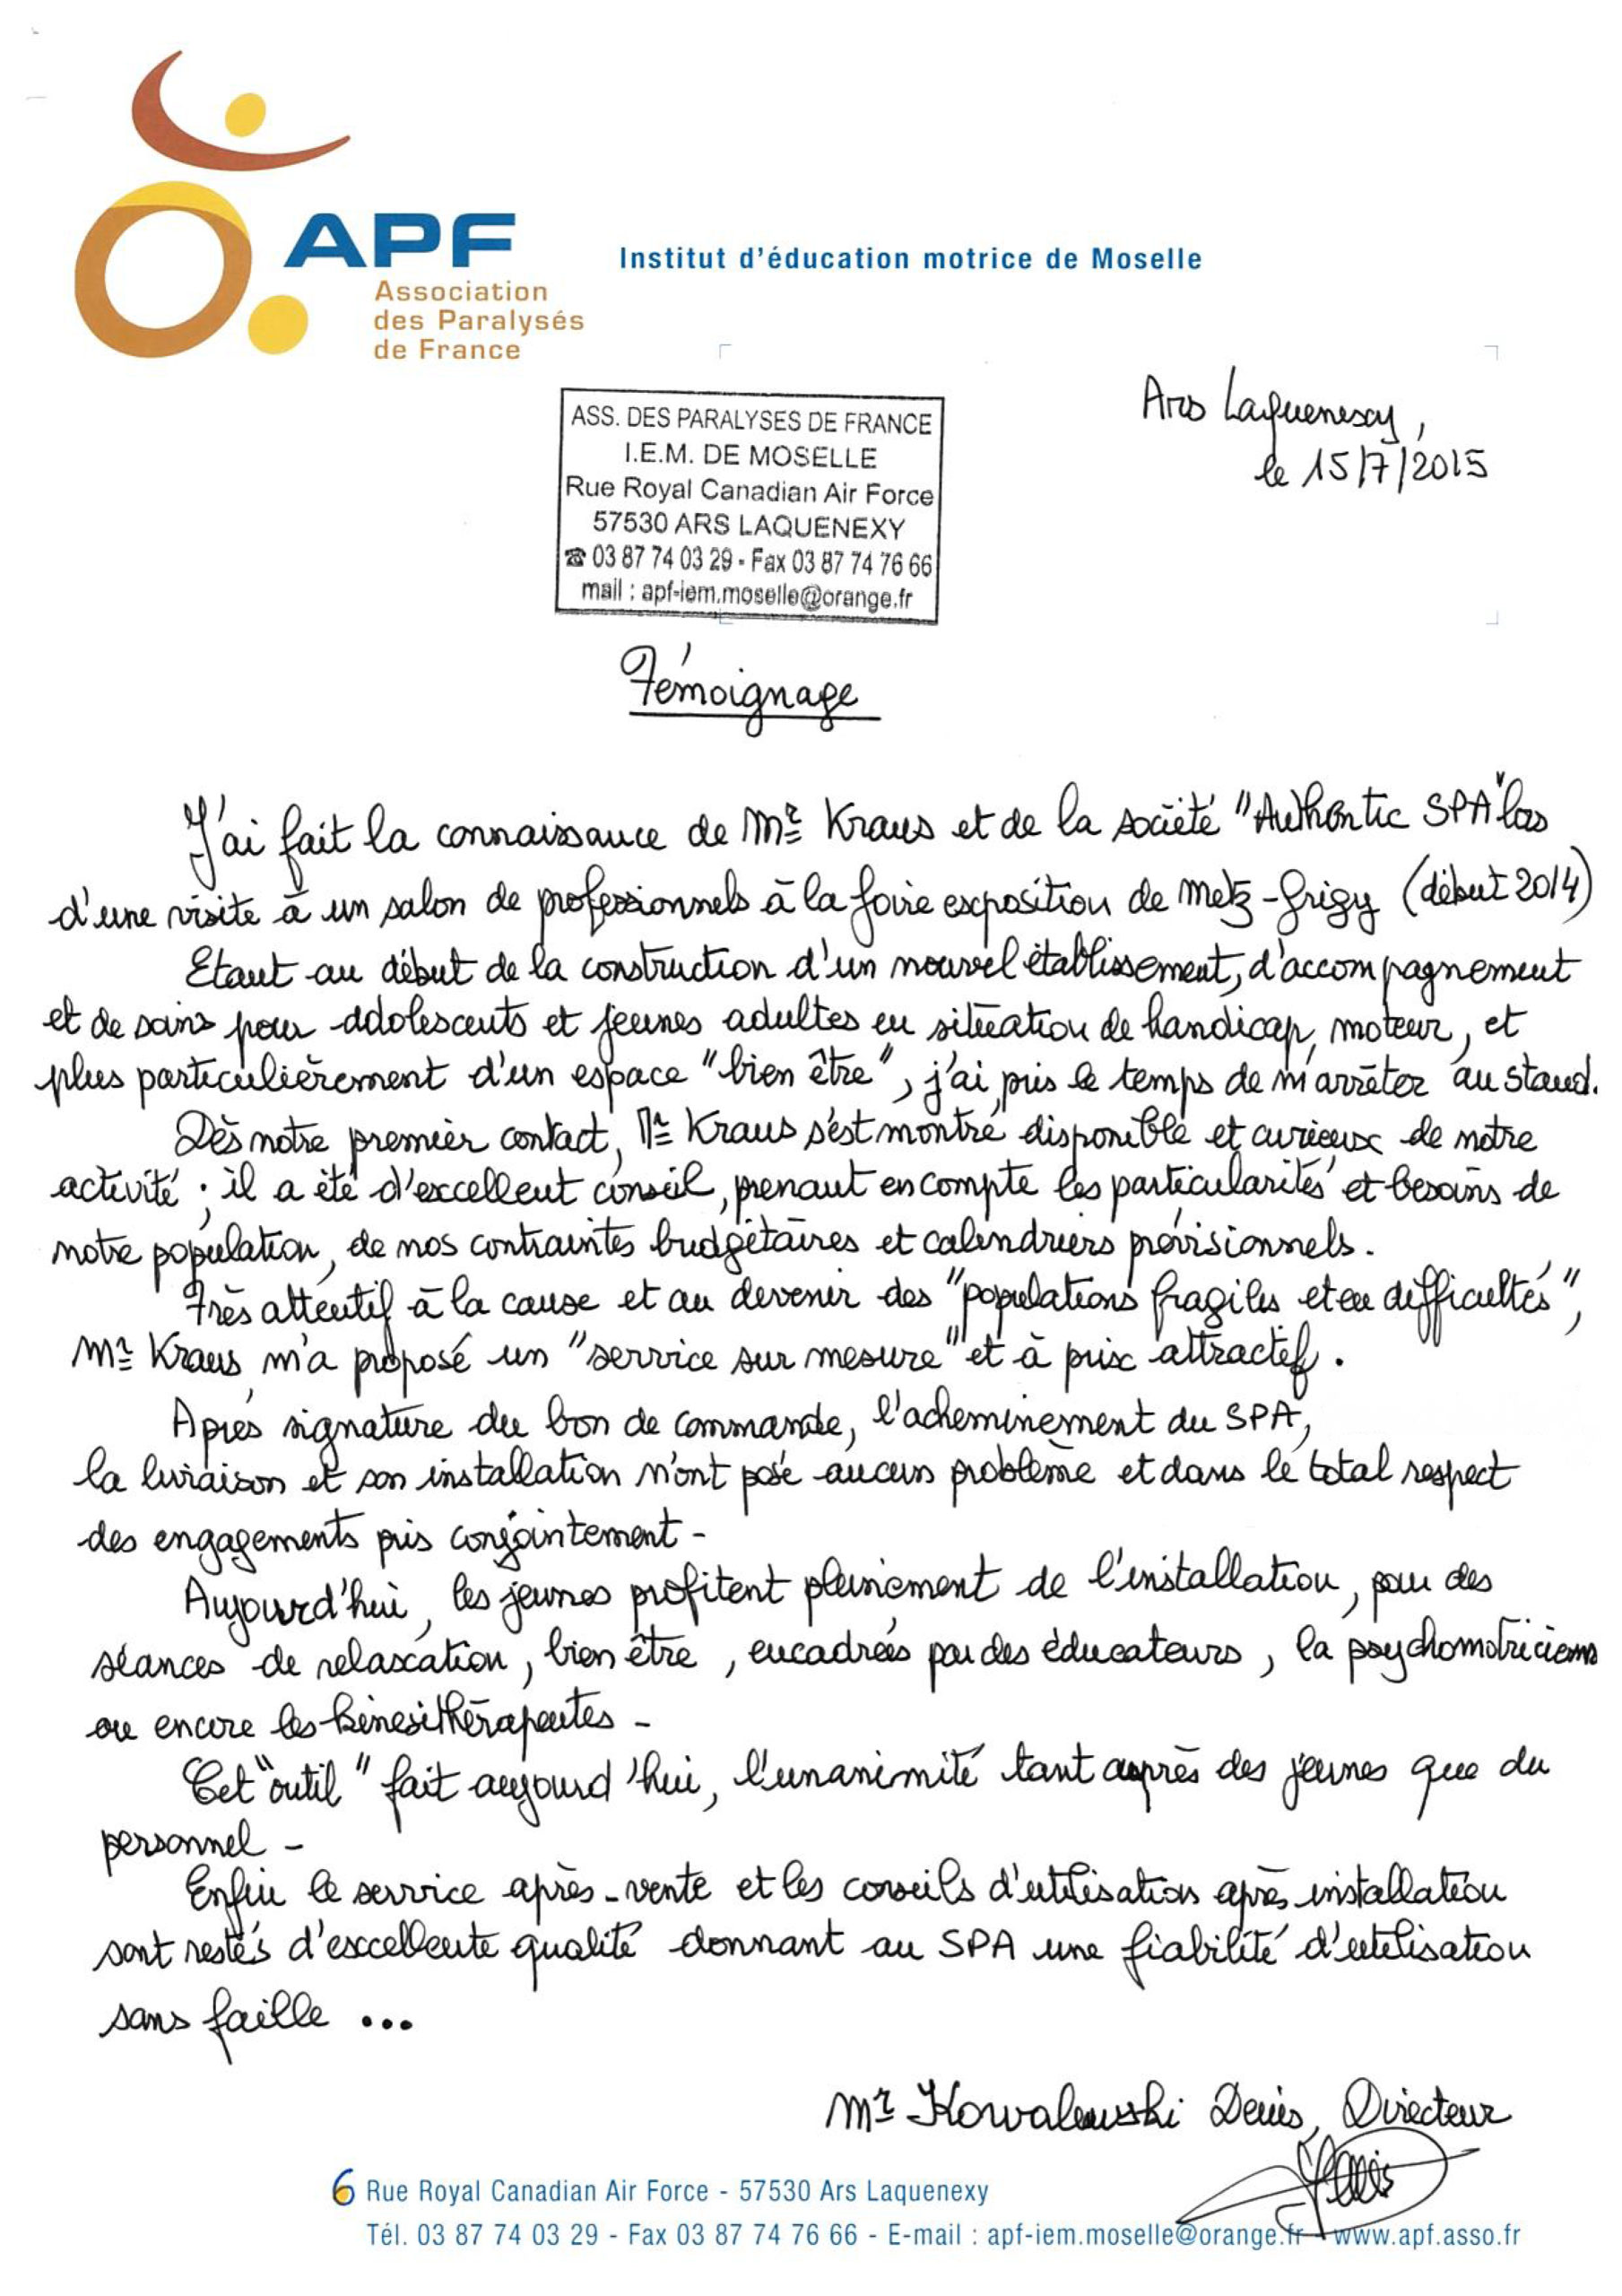 APF
Association
des Paralysés
de France
Institut d'éducation motrice de Moselle
ASS. DES PARALYSES DE FRANCE
I.E.M. DE MOSELLE
Rue Royal Canadian Air Force
57530 ARS LAQUENEXY
☎ 03 87 74 03 29 - Fax 03 87 74 76 66
mail : apf-iem.moselle@orange.fr
Ars Laquenexy,
le 15/7/2015
Témoignage
J'ai fait la connaissance de Mr Kraus et de la société "Authentic SPA" lors
d'une visite à un salon de professionnels à la foire exposition de Metz-Grigy (début 2014)
Etant au début de la construction d'un nouvel établissement, d'accompagnement
et de soins pour adolescents et jeunes adultes en situation de handicap, moteur, et
plus particulièrement d'un espace "bien être", j'ai pris le temps de m'arrêter au stand.
Dès notre premier contact, Mr Kraus s'est montré disponible et curieux de notre
activité ; il a été d'excellent conseil, prenant en compte les particularités et besoins de
notre population, de nos contraintes budgétaires et calendriers prévisionnels.
Très attentif à la cause et au devenir des "populations fragiles et en difficultés",
Mr Kraus m'a proposé un "service sur mesure" et à prix attractif.
Après signature du bon de commande, l'acheminement du SPA,
la livraison et son installation n'ont posé aucun problème et dans le total respect
des engagements pris conjointement -
Aujourd'hui, les jeunes profitent pleinement de l'installation, pour des
séances de relaxation, bien être, encadrées par des éducateurs, la psychomotricienne
ou encore les kinésithérapeutes -
Cet "outil" fait aujourd'hui, l'unanimité tant auprès des jeunes que du
personnel -
Enfin le service après-vente et les conseils d'utilisation après installation
sont restés d'excellente qualité donnant au SPA une fiabilité d'utilisation
sans faille ...
Mr Kowalewski Denis, Directeur
6 Rue Royal Canadian Air Force - 57530 Ars Laquenexy
Tél. 03 87 74 03 29 - Fax 03 87 74 76 66 - E-mail : apf-iem.moselle@orange.fr - www.apf.asso.fr